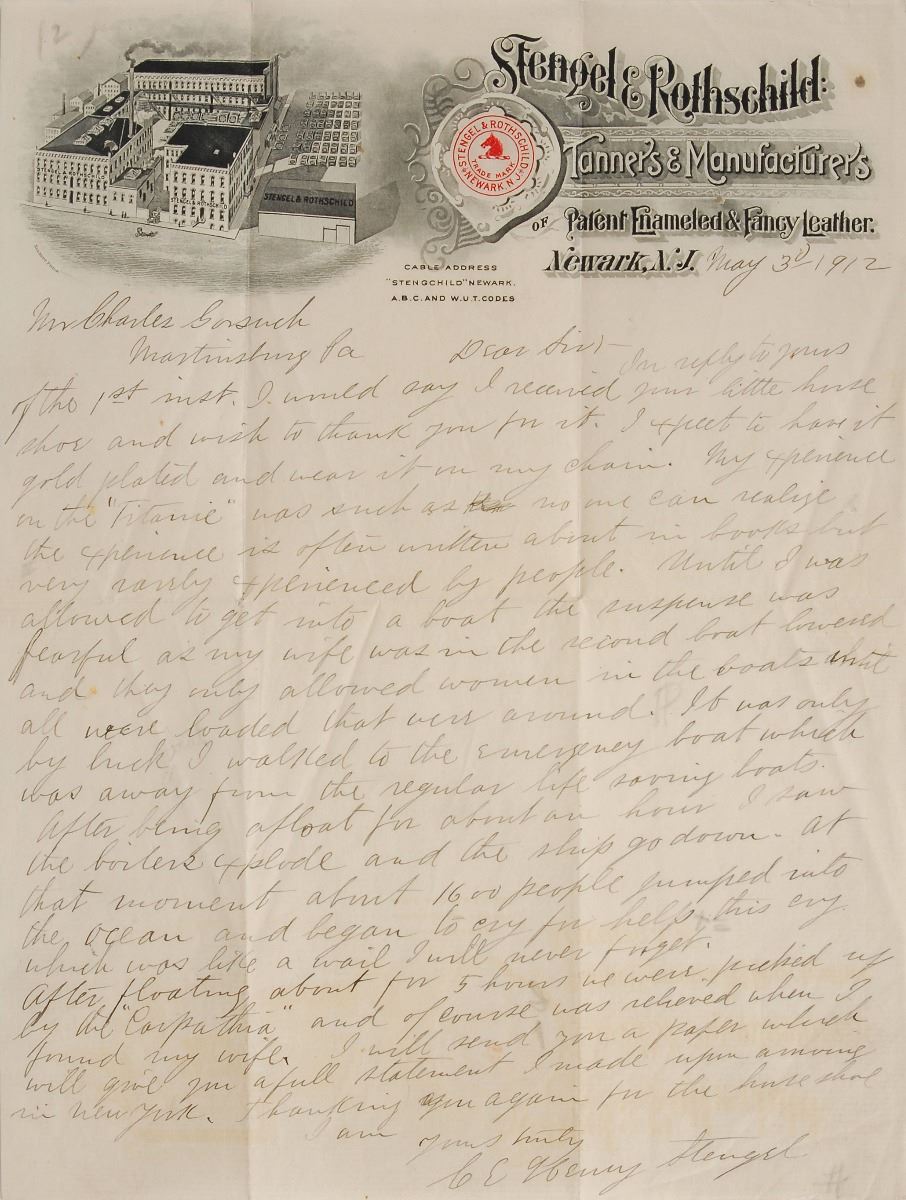 Stengel & Rothschild:
Tanners & Manufacturers
OF Patent Enameled & Fancy Leather.
Newark, N.J. May 3d 1912
STENGEL & ROTHSCHILD
TRADE MARK
NEWARK, N.J.
STENGEL & ROTHSCHILD
STENGEL & ROTHSCHILD
STENGEL & ROTHSCHILD
CABLE ADDRESS
"STENGCHILD" NEWARK.
A.B.C. AND W.U.T. CODES
Mr Charles Gorsuch
Martinsburg Pa Dear Sir:- In reply to yours
of the 1st inst. I would say I received your little horse
shoe and wish to thank you for it. I xpect to have it
gold plated and wear it on my chain. My xperience
on the "Titanic" was such as no one can realize
the xperience is often written about in books but
very rarely xperienced by people. Until I was
allowed to get into a boat the suspense was
fearful as my wife was in the second boat lowered
and they only allowed women in the boats until
all were loaded that were around. It was only
by luck I walked to the emergency boat which
was away from the regular life saving boats.
After being afloat for about an hour I saw
the boilers xplode and the ship go down. At
that moment about 1600 people jumped into
the ocean and began to cry for help, this cry
which was like a wail I will never forget.
After floating about for 5 hours we were picked up
by the "Carpathia" and of course was relieved when I
found my wife. I will send you a paper which
will give you a full statement I made upon arriving
in New York. Thanking you again for the horse shoe
I am yours truly
C E Henry Stengel